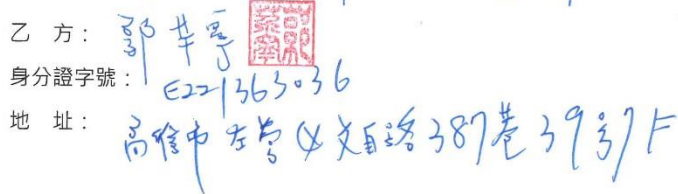 乙 方：郭芊寧
身分證字號：E221363036
地 址：高雄市左營区文自路387巷39号7F